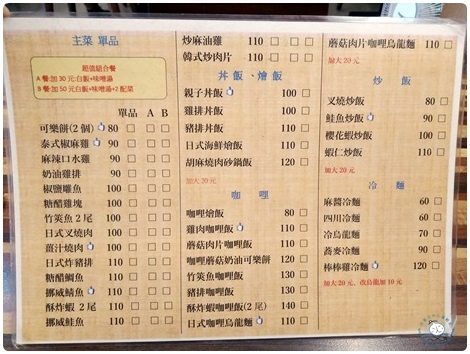 主菜 單品
超值組合餐
A 餐:加 30 元:白飯+味噌湯
B 餐:加 50 元:白飯+味噌湯+2 配菜
單品 A B
可樂餅(2個) 80 □ □ □
泰式椒麻雞 90 □ □ □
麻辣口水雞 90 □ □ □
奶油雞排 90 □ □ □
椒鹽雞魚 100 □ □ □
糖醋雞塊 100 □ □ □
竹筴魚 2 尾 100 □ □ □
日式叉燒肉 100 □ □ □
薑汁燒肉 100 □ □ □
日式炸豬排 110 □ □ □
糖醋鯛魚 110 □ □ □
挪威鯖魚 110 □ □ □
酥炸蝦 2 尾 110 □ □ □
挪威鮭魚 110 □ □ □
炒麻油雞 110 □ □ □
韓式炒肉片 110 □ □ □
丼飯、燴飯
親子丼飯 100 □
雞排丼飯 100 □
豬排丼飯 110 □
日式海鮮燴飯 110 □
胡麻燒肉砂鍋飯 120 □
加大 20 元
咖 哩
咖哩燴飯 80 □
雞肉咖哩飯 110 □
蘑菇肉片咖哩飯 110 □
咖哩蘑菇奶油可樂餅 120 □
竹筴魚咖哩飯 130 □
豬排咖哩飯 130 □
酥炸蝦咖哩飯(2尾) 140 □
日式咖哩烏龍麵 110 □
蘑菇肉片咖哩烏龍麵 110 □
加大 20 元
炒 飯
叉燒炒飯 80 □
鮭魚炒飯 90 □
櫻花蝦炒飯 100 □
蝦仁炒飯 110 □
加大 20 元
冷 麵
麻醬冷麵 60 □
四川冷麵 60 □
冷烏龍麵 70 □
蕎麥冷麵 90 □
棒棒雞冷麵 120 □
加大 20 元、改烏龍加 10 元